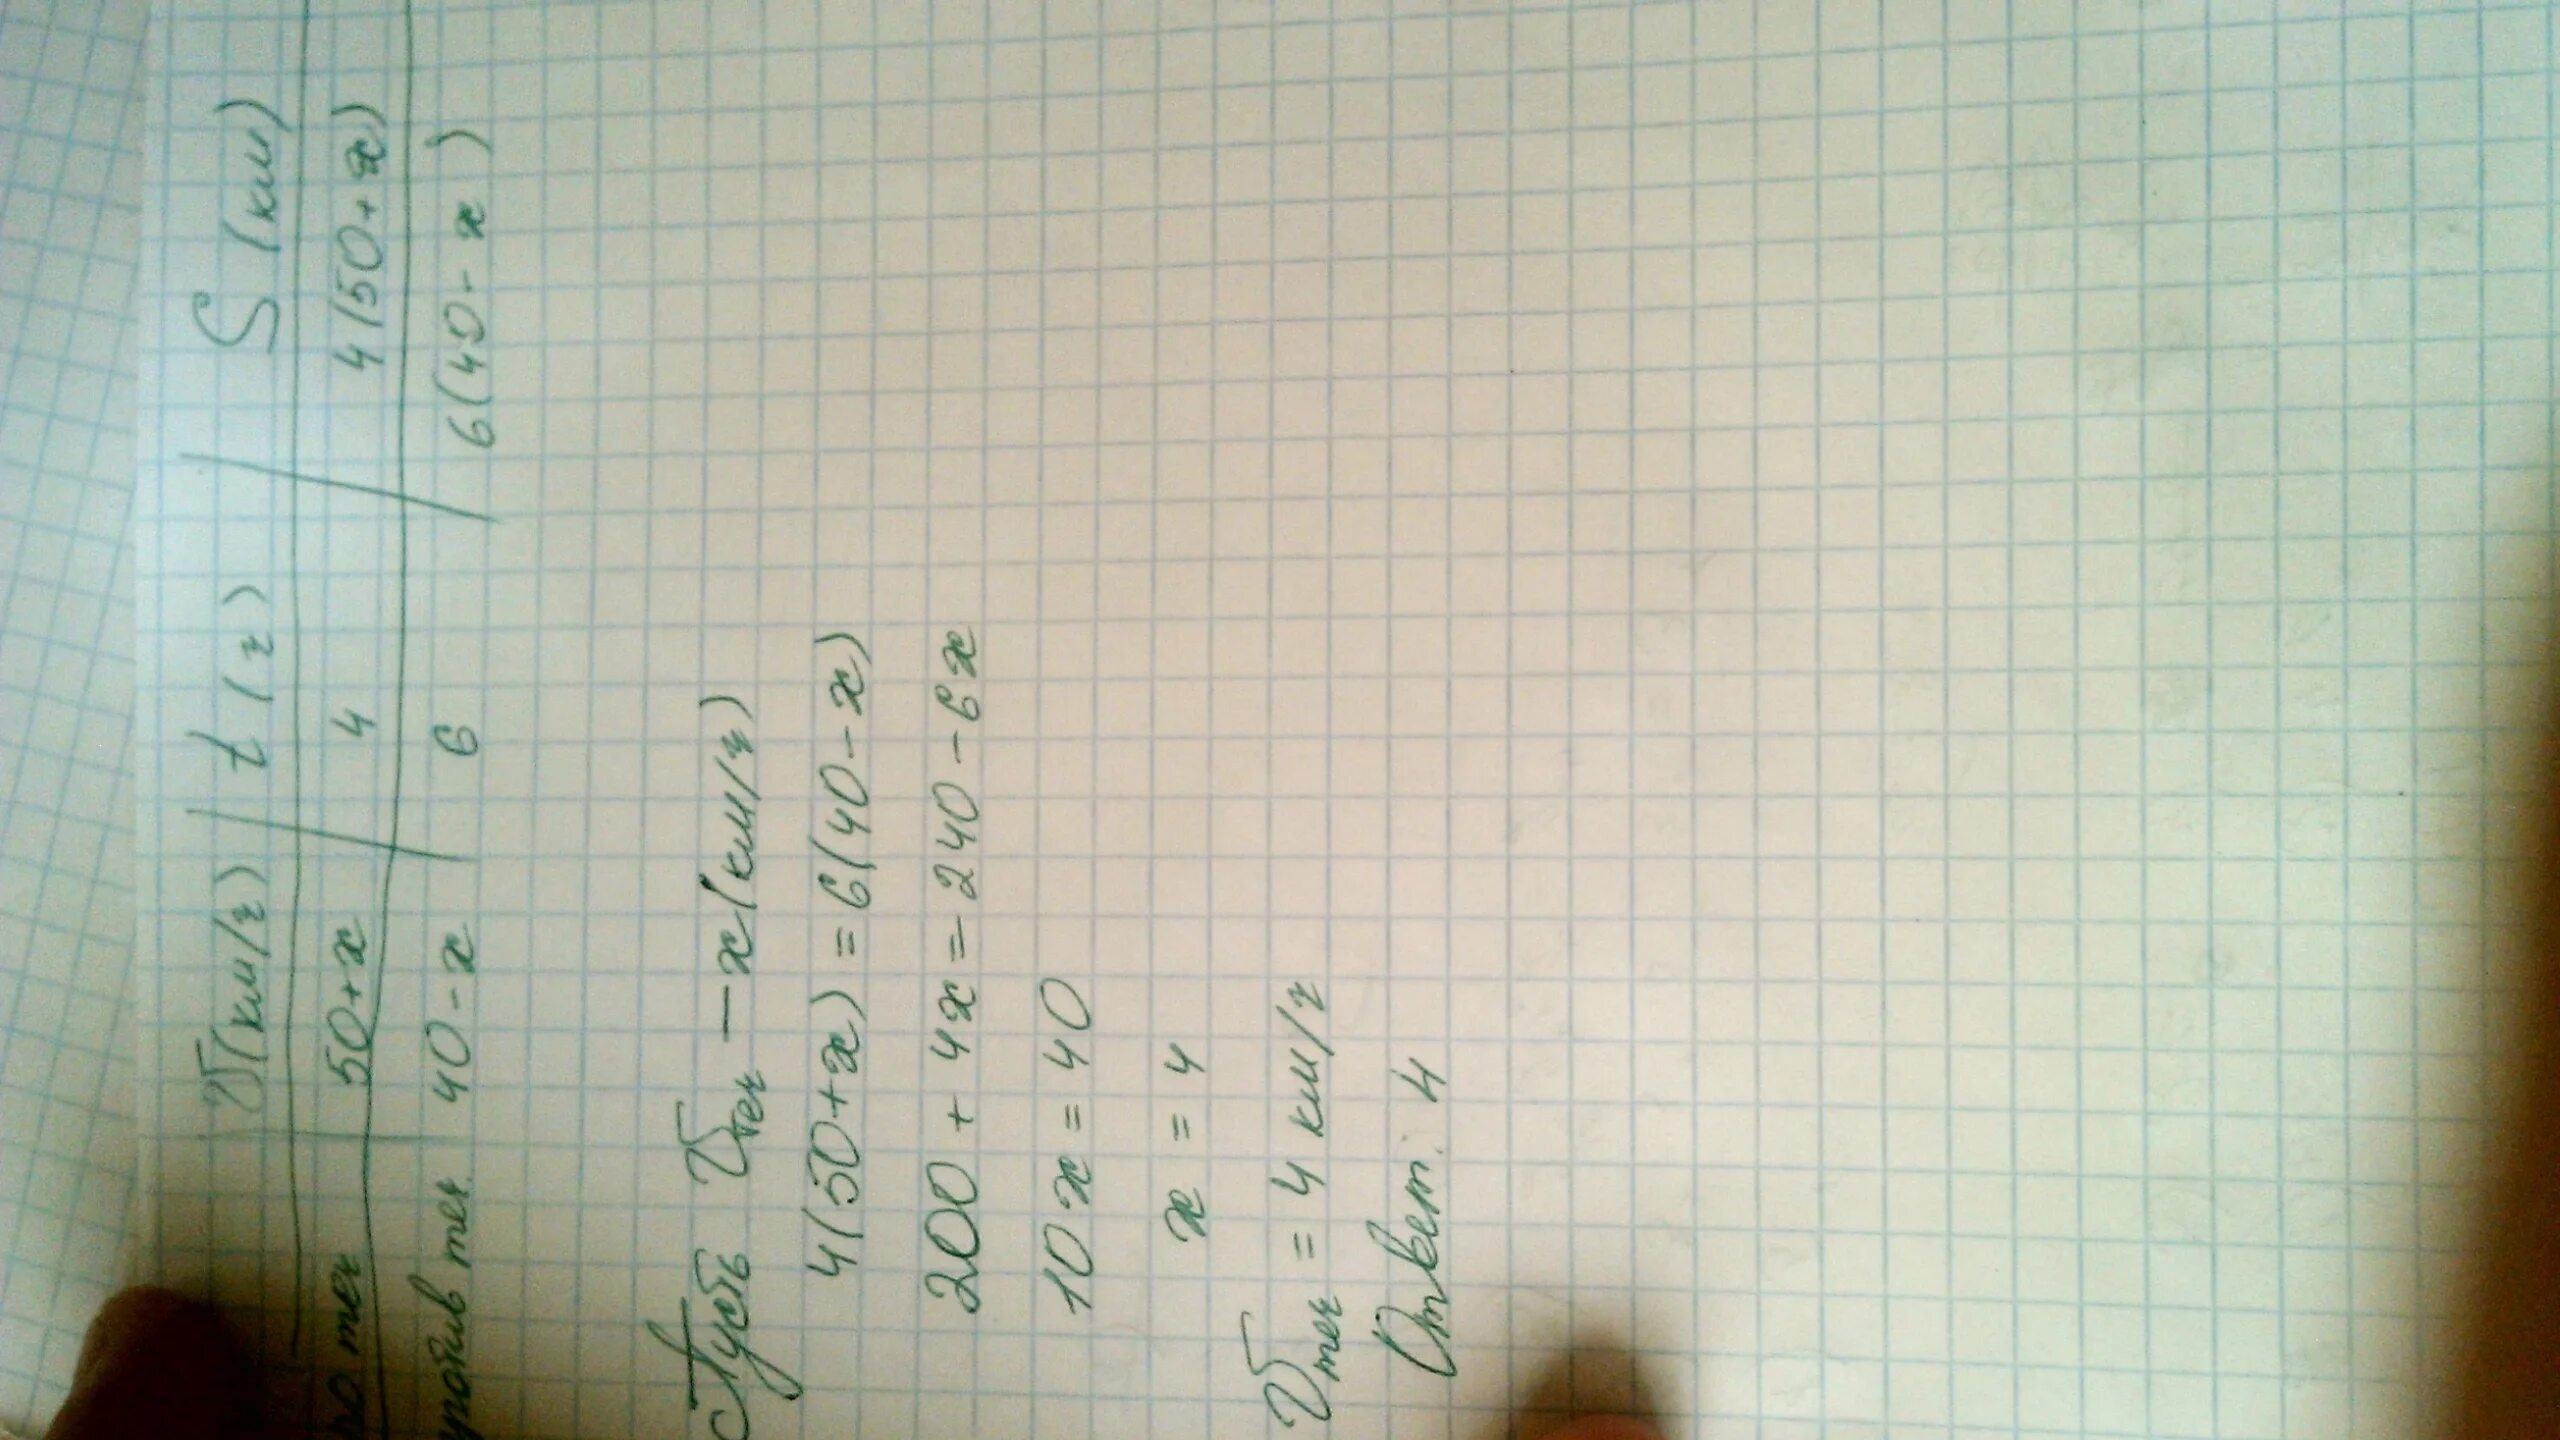 V(км/ч) t(ч) S(км)
по теч 50+x 4 4(50+x)
против теч. 40-x 6 6(40-x)
Пусть Vтеч — x(км/ч)
4(50+x)=6(40-x)
200+4x=240-6x
10x=40
x=4
Vтеч=4 км/ч
Ответ: 4